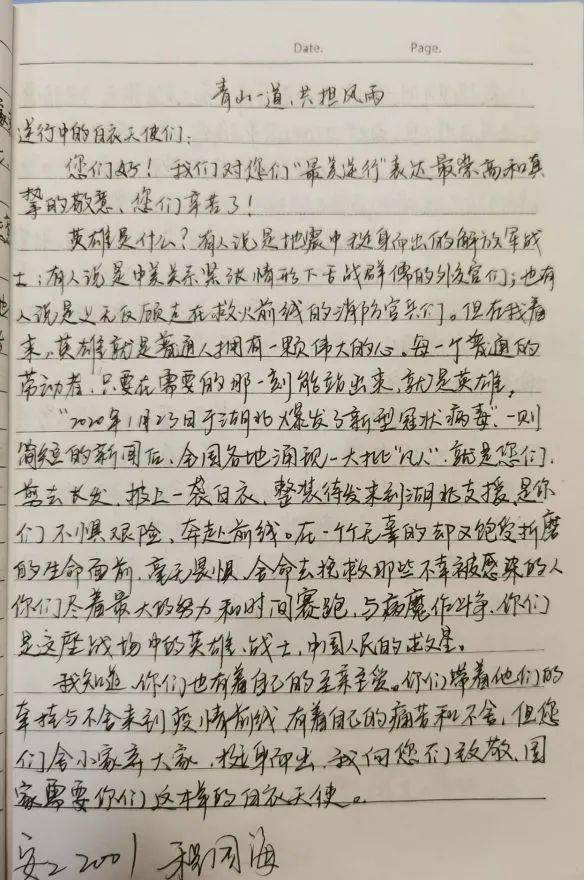 Date. Page.
青山一道,共担风雨
逆行中的白衣天使们:
您们好!我们对您们"最美逆行"表达最崇高和真
挚的敬意、您们辛苦了!
英雄是什么?有人说是地震中挺身而出的解放军战
士;有人说是中美关系紧张情形下舌战群儒的外交官们;也有
人说是义无反顾走在救火前线的消防官兵们。但在我看
来,英雄就是普通人拥有一颗伟大的心。每一个普通的
劳动者,只要在需要的那一刻能站出来,就是英雄。
"2020年1月23日于湖北爆发了新型冠状病毒",一则
简短的新闻后,全国各地涌现一大批"凡人",就是您们,
剪去长发,披上一袭白衣,整装待发来到湖北支援,是你
们不惧艰险、奔赴前线。在一个个无辜的却又饱受折磨
的生命面前,毫无畏惧、舍命去挽救那些不幸被感染的人
你们尽着最大的努力和时间赛跑,与病魔作斗争,你们
是这座战场中的英雄、战士,中国人民的救星。
我知道、你们也有着自己的至亲至爱。你们带着他们的
牵挂与不舍来到疫情前线,有着自己的痛苦和不舍,但您
们舍小家弃大家,挺身而出,我向您们致敬,国
家需要你们这样的白衣天使。
安工2001 海